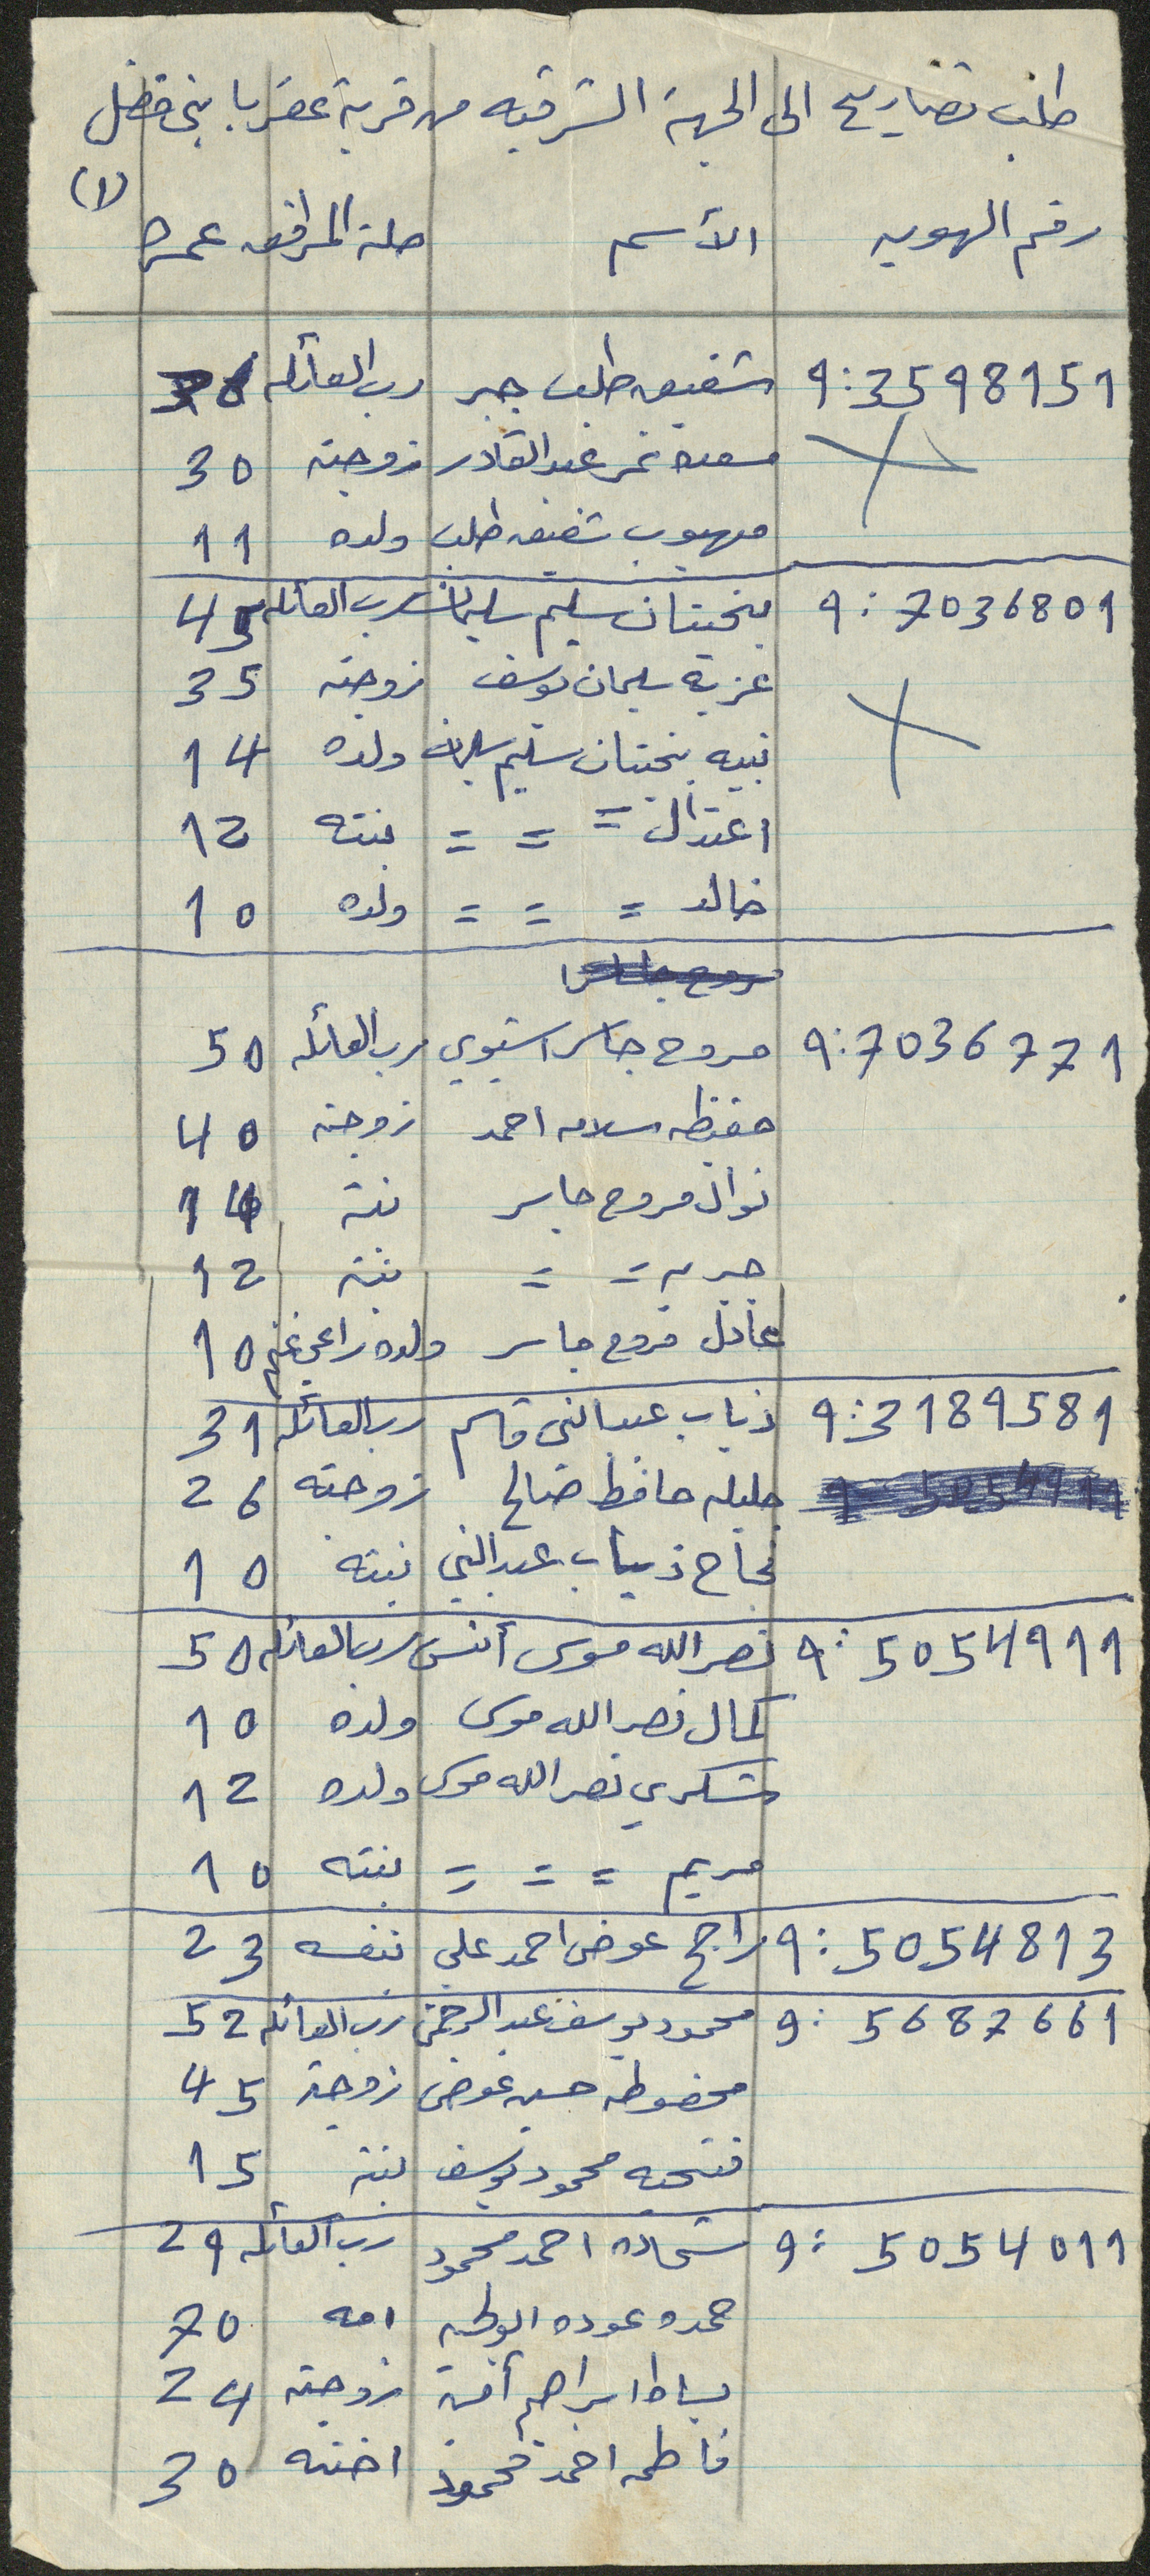 طلب تصاريح الى الجهة الشرقيه من قرية عقربا بني فضل
(١)
رقم الهويه الأسم صلة المرافق عمره
9:3598151 شفيق طلب جبر رب العائله
نمر عبدالقادر زوجته 30
مهيوب شفيق طلب ولده 11
9:7036801 سليم سليمان رب العائله 45
عزيه سليمان يوسف زوجته 35
نبيه سليم سليمان ولده 14
اعتدال = = = بنته 12
خالد = = = ولده 10
9:7036771 مروح جاسر اشتيوي رب العائله 50
حفيظه سلامه احمد زوجته 40
نوال مروح جاسر بنته 14
= = بنته 12
عادل مروح جاسر ولده راعي غنم 10
9:3189581 ذياب عبدالنبي قاسم رب العائله 31
جليله حافظ صالح زوجته 26
نجاح ذياب عبدالنبي بنته 10
9:5054911 نصرالله موسى أنس رب العائله 50
كمال نصرالله موسى ولده 10
شكري نصرالله موسى ولده 12
مريم = = = بنته 10
9:5054813 راجح عوض احمد علي بنفسه 23
9:5687661 محمود يوسف عبدالرحمن رب العائله 52
محفوظه حسين عوض زوجته 45
فتحيه محمود يوسف بنته 15
9:5054011 شحاده احمد محمود رب العائله 29
حمده عوده امه 70
ابراهيم زوجته 24
فاطمه احمد محمود اخته 30